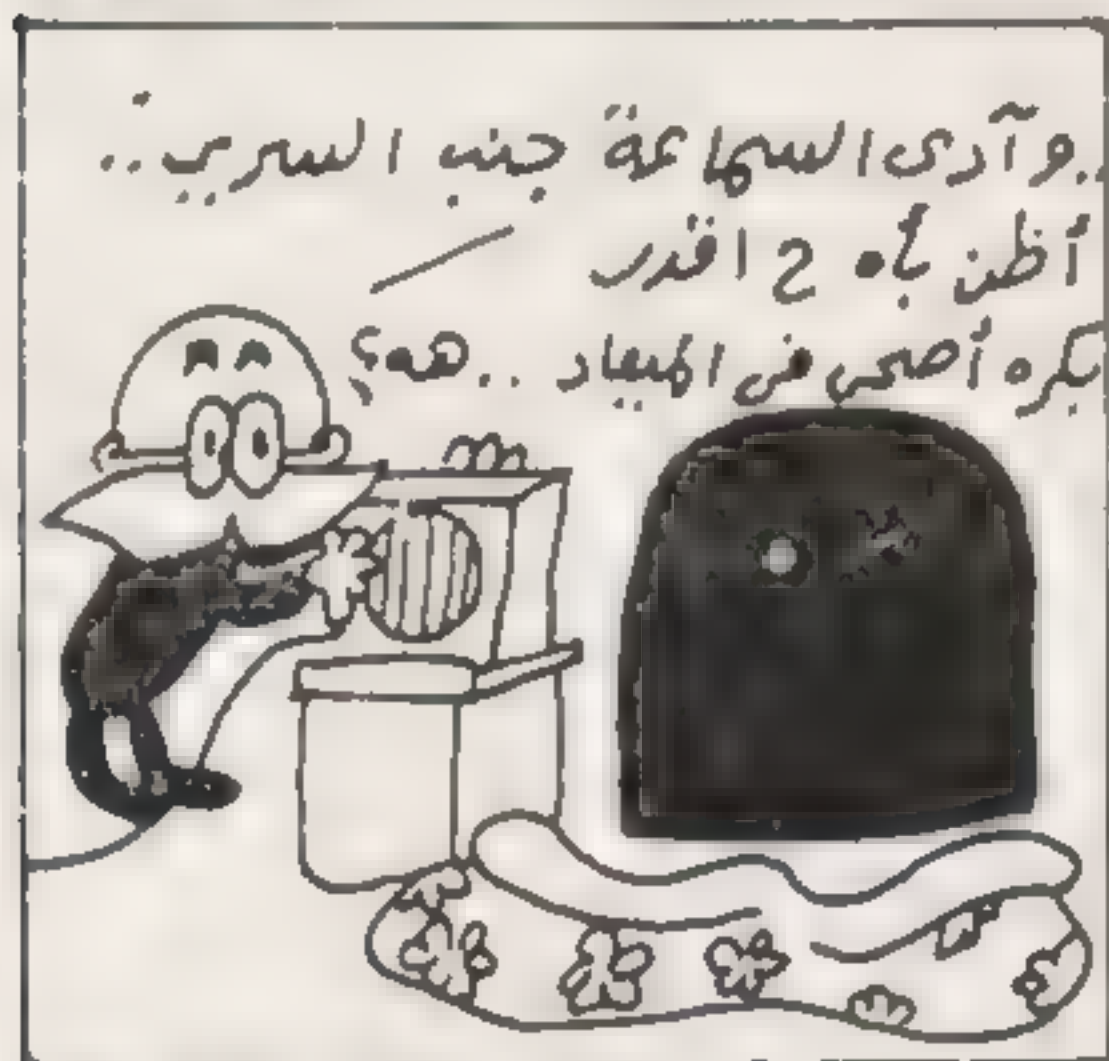 ..و آدى السماعة جنب السرير..
أظن بأه ح اقدر
بكره أصحى فى الميعاد .. هه؟